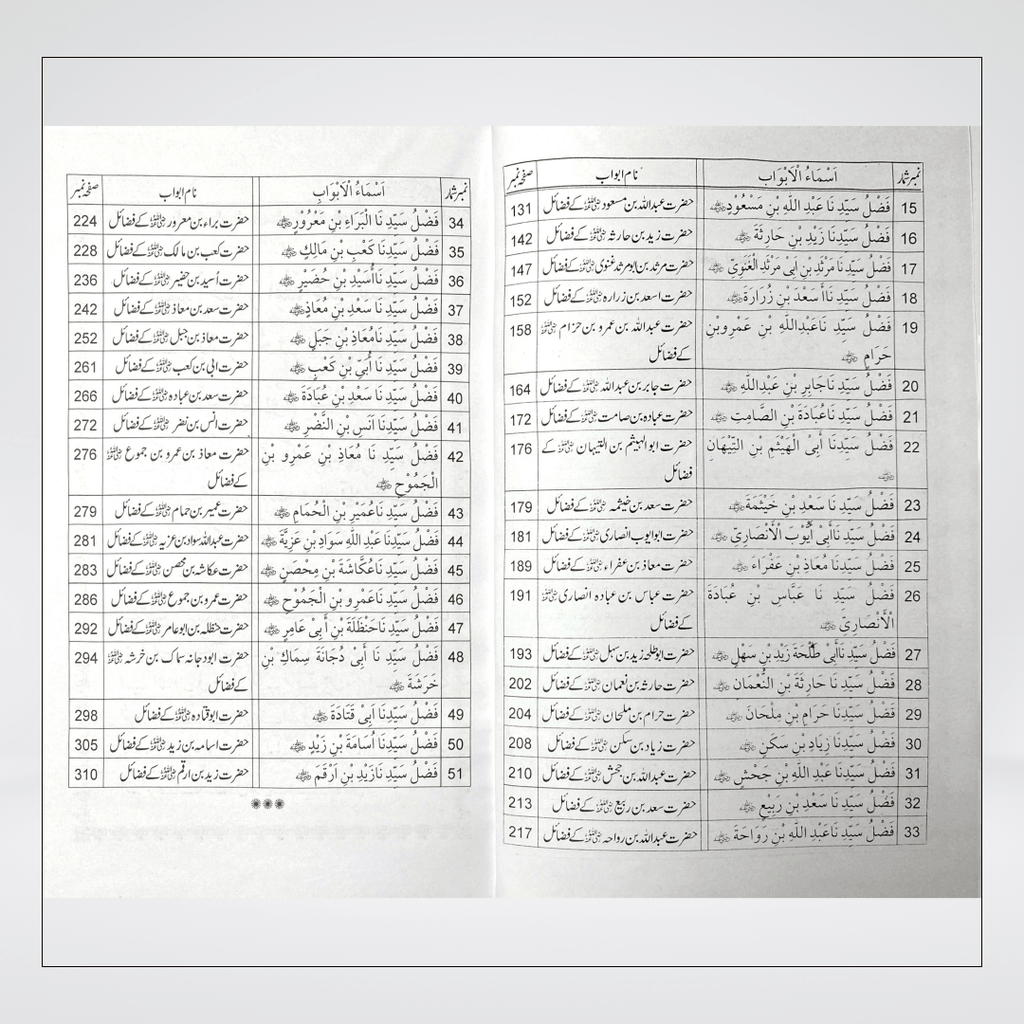 نمبر شمار اَسْمَاءُ الْاَبْوَابِ نام ابواب صفحہ نمبر
15 فَضْلُ سَيِّدِ نَا عَبْدِ اللَّهِ بْنِ مَسْعُوْدٍ ﷜ حضرت عبداللہ بن مسعود ﷜ کے فضائل 131
16 فَضْلُ سَيِّدِنَا زَيْدِ بْنِ حَارِثَةَ ﷜ حضرت زید بن حارثہ ﷜ کے فضائل 142
17 فَضْلُ سَيِّدِ نَا مَرْثَدِ بْنِ اَبِى مَرْثَدِ الْغَنَوِىِّ ﷜ حضرت مرثد بن ابو مرثد غنوی ﷜ کے فضائل 147
18 فَضْلُ سَيِّدِ نَا أَ سْعَدَ بْنِ زُرَارَةَ ﷜ حضرت اسعد بن زرارہ ﷜ کے فضائل 152
19 فَضْلُ سَيِّدِ نَاعَبْدِاللَّهِ بْنِ عَمْرِوبْنِ حضرت عبداللہ بن عمرو بن حزام ﷜ 158
حَرَامٍ ﷜ کے فضائل
20 فَضْلُ سَيِّدِ نَاجَابِرِ بْنِ عَبْدِاللَّهِ ﷜ حضرت جابر بن عبداللہ ﷜ کے فضائل 164
21 فَضْلُ سَيِّدِ نَاعُبَادَةَ بْنِ الصَّامِتِ ﷜ حضرت عبادہ بن صامت ﷜ کے فضائل 172
22 فَضْلُ سَيِّدِنَا أَبِىْ الْهَيْثَمِ بْنِ التِّيْهَانِ حضرت ابوالہیثم بن التیہان ﷜ کے 176
﷜ فضائل
23 فَضْلُ سَيِّدِ نَا سَعْدِ بْنِ خَيْثَمَةَ ﷜ حضرت سعد بن خیثمہ ﷜ کے فضائل 179
24 فَضْلُ سَيِّدِ نَاأَبِىْ أَيُّوْبَ الْأَنْصَارِىِّ ﷜ حضرت ابوایوب انصاری ﷜ کے فضائل 181
25 فَضْلُ سَيِّدِنَا مُعَاذِ بْنِ عَفْرَاء ﷜ حضرت معاذ بن عفراء ﷜ کے فضائل 189
26 فَضْلُ سَيِّدِ نَا عَبَّاسِ بْنِ عُبَادَةَ حضرت عباس بن عبادہ انصاری ﷜ 191
الْأَنْصَارِىِّ ﷜ کے فضائل
27 فَضْلُ سَيِّدِ نَاأَبِىْ طَلْحَة زَيْدِ بْنِ سَهْلٍ ﷜ حضرت ابوطلحہ زید بن سہل ﷜ کے فضائل 193
28 فَضْلُ سَيِّدِ نَا حَارِثَةَ بْنِ النُّعْمَانِ ﷜ حضرت حارثہ بن نعمان ﷜ کے فضائل 202
29 فَضْلُ سَيِّدِنَا حَرَامِ بْنِ مِلْحَانَ ﷜ حضرت حرام بن ملحان ﷜ کے فضائل 204
30 فَضْلُ سَيِّدِنَا زِيَادِ بْنِ سَكَنٍ ﷜ حضرت زیاد بن سکن ﷜ کے فضائل 208
31 فَضْلُ سَيِّدِنَا عَبْدِ اللَّهِ بْنِ جَحْشٍ ﷜ حضرت عبداللہ بن جحش ﷜ کے فضائل 210
32 فَضْلُ سَيِّدِ نَا سَعْدِ بْنِ رَبِيْعٍ ﷜ حضرت سعد بن ربیع ﷜ کے فضائل 213
33 فَضْلُ سَيِّدِ نَاعَبْدِ اللَّهِ بْنِ رَوَاحَةَ ﷜ حضرت عبداللہ بن رواحہ ﷜ کے فضائل 217
نمبر شمار اَسْمَاءُ الْاَبْوَابِ نام ابواب صفحہ نمبر
34 فَضْلُ سَيِّدِ نَا الْبَرَاءِ بْنِ مَعْرُوْرٍ ﷜ حضرت براء بن معرور ﷜ کے فضائل 224
35 فَضْلُ سَيِّدِنَا كَعْبِ بْنِ مَالِكٍ ﷜ حضرت کعب بن مالک ﷜ کے فضائل 228
36 فَضْلُ سَيِّدِ نَاأُسَيْدِ بْنِ حُضَيْرٍ ﷜ حضرت اُسید بن حضیر ﷜ کے فضائل 236
37 فَضْلُ سَيِّدِ نَا سَعْدِ بْنِ مُعَاذٍ ﷜ حضرت سعد بن معاذ ﷜ کے فضائل 242
38 فَضْلُ سَيِّدِ نَامُعَاذِ بْنِ جَبَلٍ ﷜ حضرت معاذ بن جبل ﷜ کے فضائل 252
39 فَضْلُ سَيِّدِ نَا أُبَىِّ بْنِ كَعْبٍ ﷜ حضرت ابی بن کعب ﷜ کے فضائل 261
40 فَضْلُ سَيِّدِ نَا سَعْدِ بْنِ عُبَادَةَ ﷜ حضرت سعد بن عبادہ ﷜ کے فضائل 266
41 فَضْلُ سَيِّدِنَا اَنَسِ بْنِ النَّضْرِ ﷜ حضرت انس بن نضر ﷜ کے فضائل 272
42 فَضْلُ سَيِّدِ نَا مُعَاذِ بْنِ عَمْرِو بْنِ حضرت معاذ بن عمرو بن جموع ﷜ 276
الْجَمُوْحِ ﷜ کے فضائل
43 فَضْلُ سَيِّدِ نَاعُمَيْرِ بْنِ الْحُمَامِ ﷜ حضرت عمیر بن حمام ﷜ کے فضائل 279
44 فَضْلُ سَيِّدِنَا عَبْدِ اللَّهِ سَوَادِ بْنِ غَزِيَّةَ ﷜ حضرت عبداللہ سواد بن غزیہ ﷜ کے فضائل 281
45 فَضْلُ سَيِّدِ نَاعُكَّاشَةَ بْنِ مِحْصَنٍ ﷜ حضرت عکاشہ بن محصن ﷜ کے فضائل 283
46 فَضْلُ سَيِّدِ نَاعَمْرِو بْنِ الْجَمُوْحِ ﷜ حضرت عمرو بن جموع ﷜ کے فضائل 286
47 فَضْلُ سَيِّدِ نَاحَنْظَلَةَ بْنِ أَبِىْ عَامِرٍ ﷜ حضرت حنظلہ بن ابو عامر ﷜ کے فضائل 292
48 فَضْلُ سَيِّدِ نَا أَبِىْ دُجَانَةَ سِمَاكِ بْنِ حضرت ابودجانہ سماک بن خرشہ ﷜ 294
خَرَشَةَ ﷜ کے فضائل
49 فَضْلُ سَيِّدِنَا اَبِىْ قَتَادَةَ ﷜ حضرت ابوقتادہ ﷜ کے فضائل 298
50 فَضْلُ سَيِّدِنَا أُسَامَةَ بْنِ زَيْدٍ ﷜ حضرت اسامہ بن زید ﷜ کے فضائل 305
51 فَضْلُ سَيِّدِ نَازَيْدِ بْنِ اَرْقَمَ ﷜ حضرت زید بن ارقم ﷜ کے فضائل 310